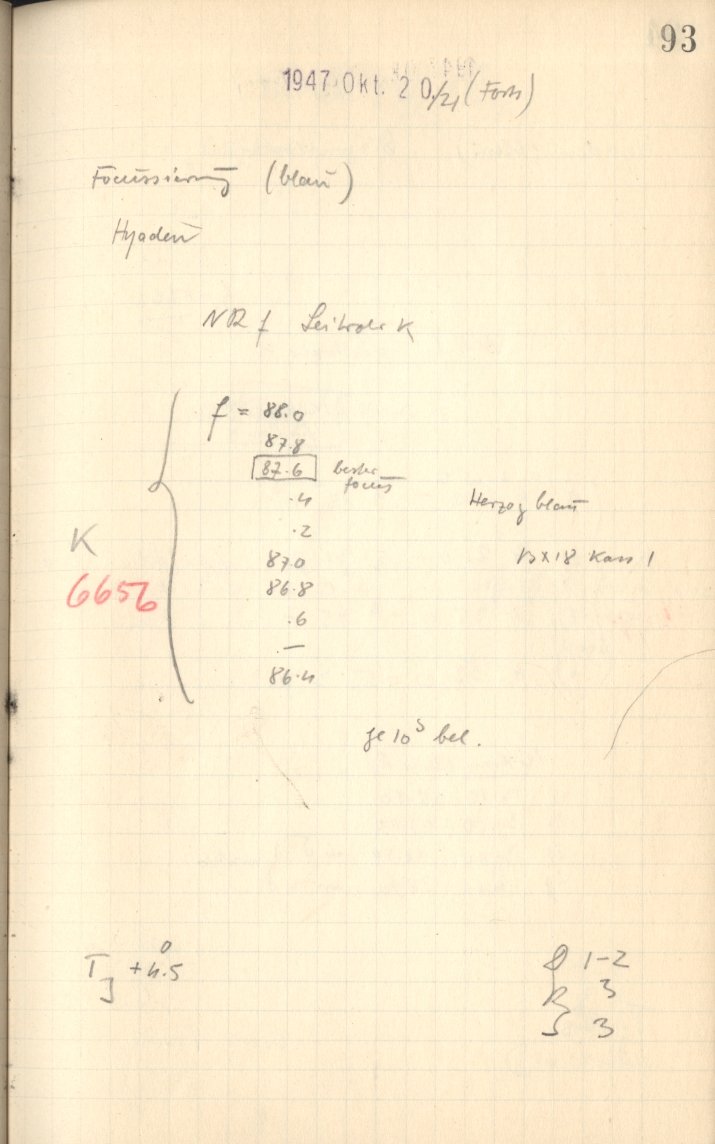 93
1947 Okt. 20./21 (Forts)
Focussierung (blau)
Hyaden
NR f Leitrohr K
f = 88.0
87.8
87.6 bester focus
.4
.2
87.0
86.8
.6
—
86.4
K
6656
Herzog blau
13x18 Kass 1
je 10s bel.
T +4.5
1-2
R 3
S 3